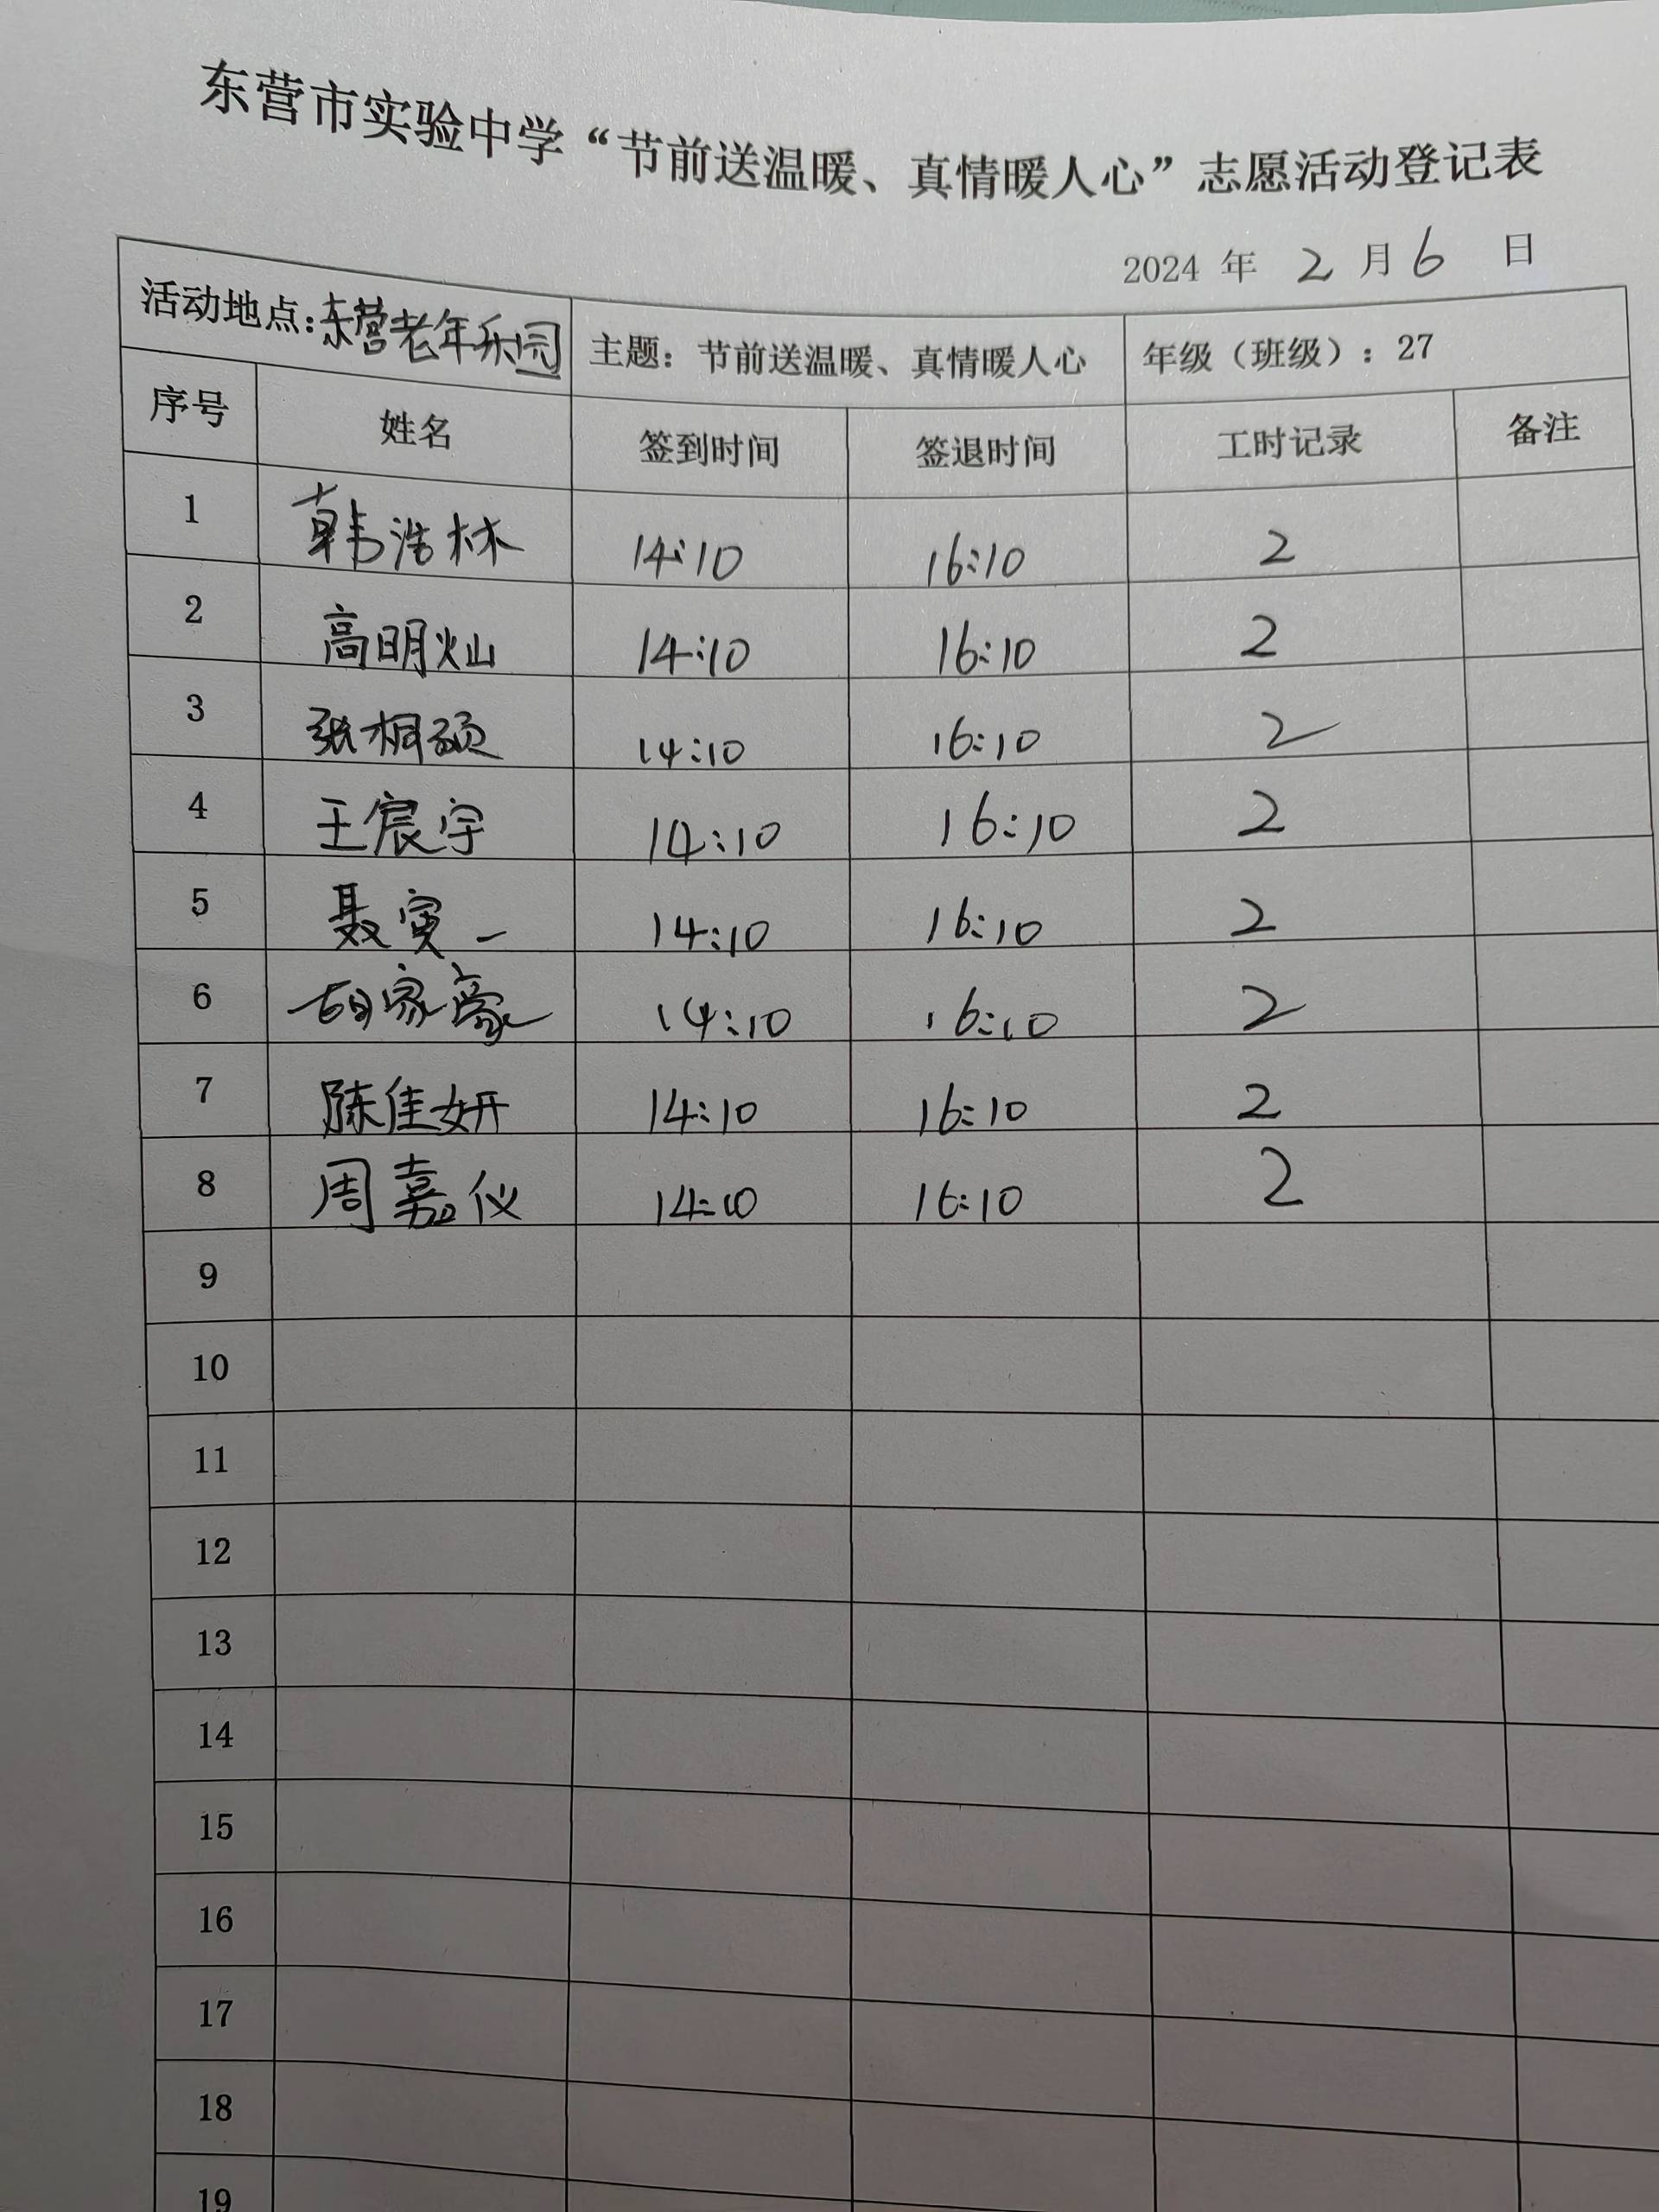 东营市实验中学“节前送温暖、真情暖人心”志愿活动登记表
2024 年 2 月 6 日
活动地点:东营老年乐园 主题：节前送温暖、真情暖人心 年级（班级）：27
序号 姓名 签到时间 签退时间 工时记录 备注
1 韩浩林 14:10 16:10 2
2 高明灿 14:10 16:10 2
3 张桐硕 14:10 16:10 2
4 王宸宇 14:10 16:10 2
5 聂寅一 14:10 16:10 2
6 胡家豪 14:10 16:10 2
7 陈佳妍 14:10 16:10 2
8 周嘉仪 14:10 16:10 2
9
10
11
12
13
14
15
16
17
18
19